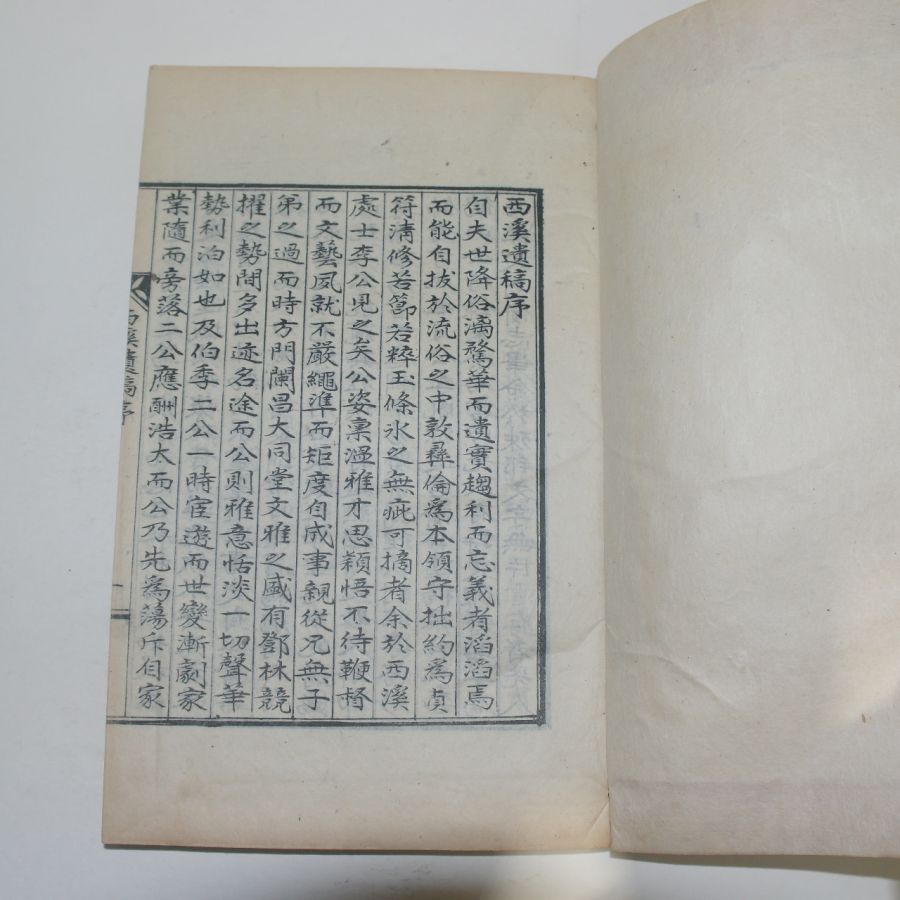 西溪遺稿序
自夫世降俗漓騖華而遺實趨利而忘義者滔滔焉
而能自拔於流俗之中敦彝倫爲本領守拙約爲貞
符淸修苦節若粹玉條氷之無疵可摘者余於西溪
處士李公見之矣公姿稟溫雅才思穎悟不待鞭督
而文藝夙就不嚴繩準而矩度自成事親從兄無子
弟之過而時方門闌昌大同堂文雅之盛有鄧林競
擢之勢間多出迹名途而公則雅意恬淡一切聲華
勢利泊如也及伯季二公一時宦遊而世變漸劇家
業隨而旁落二公應酬浩大而公乃先爲蕩斥自家
西溪遺稿序